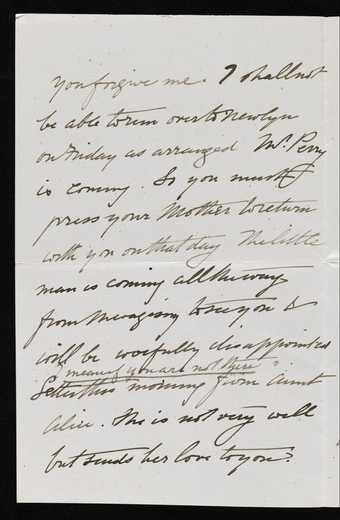 you forgive me. I shall not
be able to run over to Newlyn
on Friday as arranged Mr. Perry
is coming. So you must
press your Mother to return
with you on that day The little
man is coming all the way
from to see you &
will be woefully disappointed
I mean if you are not there
Letter this morning from Aunt
Alice. She is not very well
but sends her love to you.